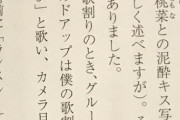 桃菜との泥酔キス写
しく述べますが）。
ありました。
歌割りのとき、グルー
ドアップは僕の歌割
」と歌い、カメラ目